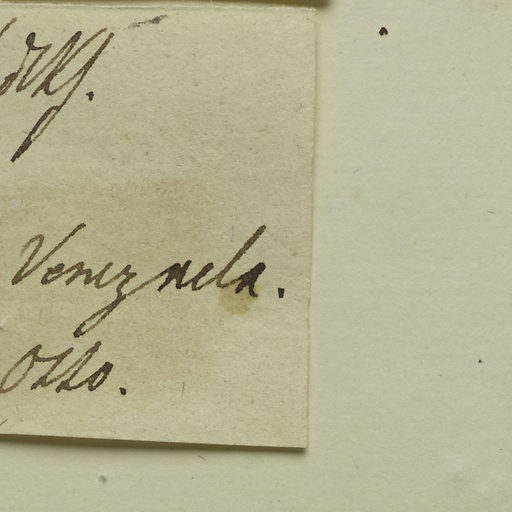 Venezuela.
Otto.